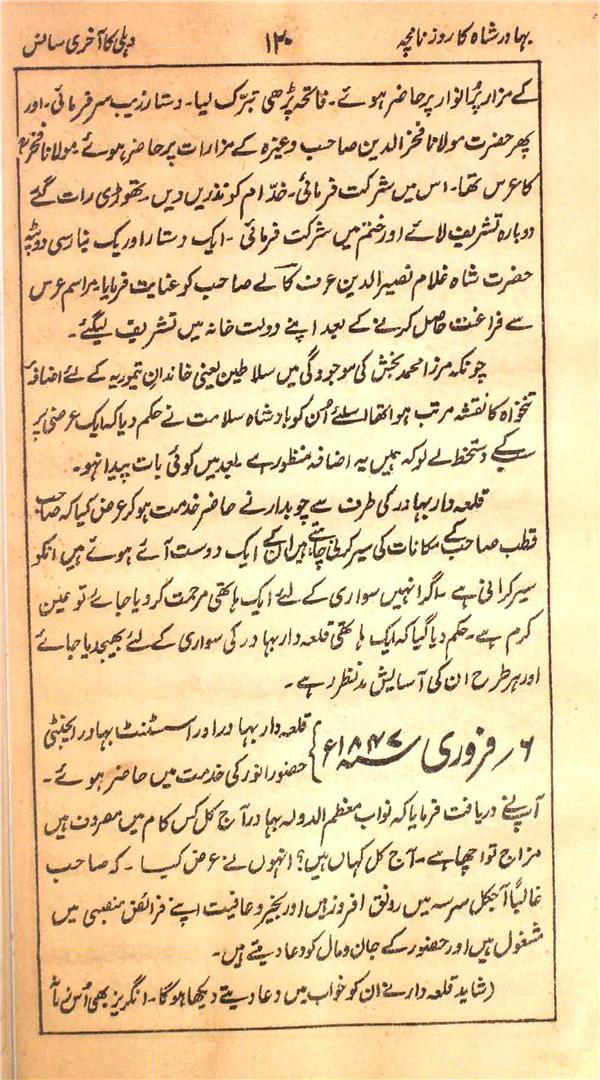 بہادر شاہ کا روزنامچہ
۱۳۰
دہلی کا آخری سانس
کے مزار پُرانوار پر حاضر ہوئے۔ فاتحہ پڑھی تبرّک لیا۔ دستار زیب سر فرمائی۔ اور
پھر حضرت مولانا فخرالدین صاحب وغیرہ کے مزارات پر حاضر ہوئے۔ مولانا فخرؒ
کا عرس تھا۔ اس میں شرکت فرمائی۔ خدّام کو نذریں دیں۔ تھوڑی رات گئے
دوبارہ تشریف لائے اور ختم میں شرکت فرمائی۔ ایک دستار اور یک بنارسی دوپٹہ
حضرت شاہ غلام نصیرالدین عرف کالے صاحب کو عنایت فرمایا۔ مراسم عرس
سے فراغت حاصل کرنے کے بعد اپنے دولت خانہ میں تشریف لیگئے۔
چونکہ مرزا محمد بخش کی موجودگی میں سلاطین یعنی خاندان تیموریہ کے لئے اضافہ
تنخواہ کا نقشہ مرتب ہوا تھا اسلئے اُن کو بادشاہ سلامت نے حکم دیا کہ ایک عرضی پر
سب کے دستخط لے لو کہ ہمیں یہ اضافہ منظور ہے۔ بعد میں کوئی بات پیدا نہو۔
قلعہ دار بہادر کی طرف سے چوبدار نے حاضر خدمت ہو کر عرض کیا کہ صاحب
قطب صاحب کے مکانات کی سیر کرنی چاہتے ہیں ان کے ایک دوست آئے ہوئے ہیں انکو
سیر کرانی ہے۔ اگر انہیں سواری کے لئے ایک ہاتھی مرحمت کر دیا جائے تو عین
کرم ہے۔ حکم دیا گیا کہ ایک ہاتھی قلعہ دار بہادر کی سواری کے لئے بھیجدیا جائے
اور ہر طرح ان کی آسایش مد نظر رہے۔
۶؍ فروری سنہ ۱۸۴۷ء } قلعہ دار بہادر اور اسسٹنٹ بہادر ایجنٹی
حضور انور کی خدمت میں حاضر ہوئے۔
آپ نے دریافت فرمایا کہ نواب معظم الدولہ بہادر آج کل کس کام میں مصروف ہیں
مزاج تو اچھا ہے۔ آج کل کہاں ہیں؟ انہوں نے عرض کیا۔ کہ صاحب
غالباً آجکل سرسہ میں رونق افروز ہیں اور بخیر و عافیت اپنے فرائض منصبی میں
مشغول ہیں اور حضور کے جان و مال کو دعا دیتے ہیں۔
(شاید قلعہ دار نے ان کو خواب میں دعا دیتے دیکھا ہوگا۔ انگریز بھی اُس زما